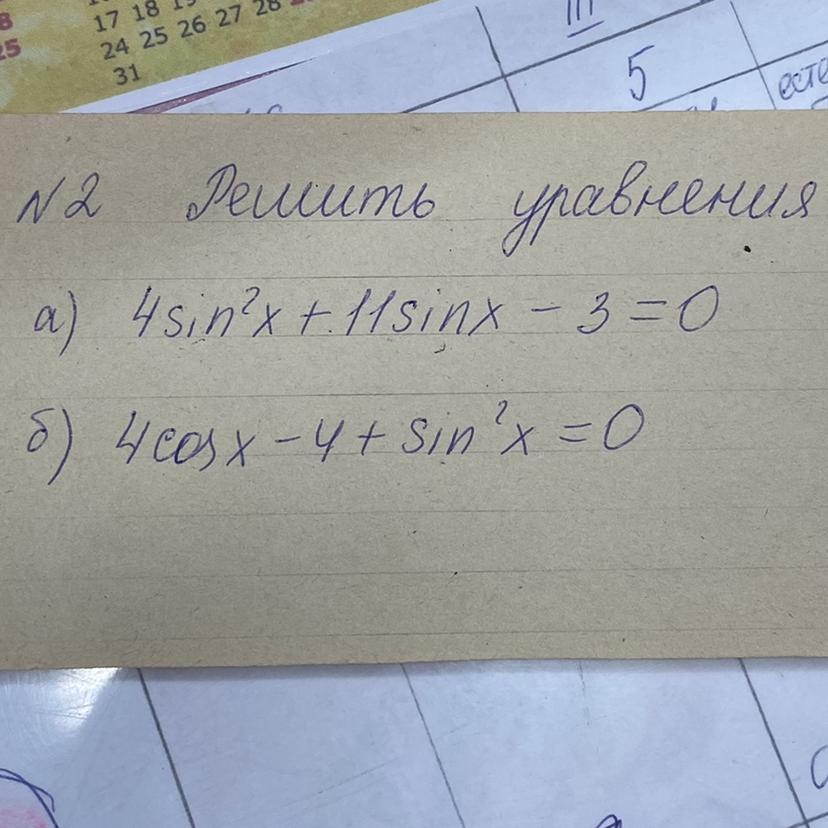 17 18 19
24 25 26 27 28
31
25
III
5
есте
N2 Решить уравнения
а) 4sin²x + 11sinx - 3 = 0
б) 4cosx - 4 + sin²x = 0